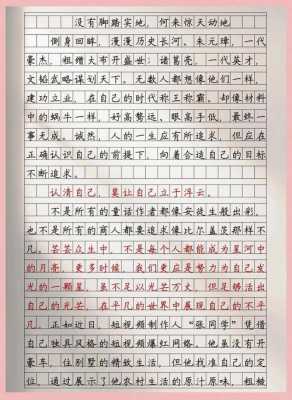 没有脚踏实地，何来惊天动地
侧身回眸，漫漫历史长河。朱元璋，一代
豪杰，粗缯大布开盛世；诸葛亮，一代英才，
文韬武略谋划天下。无数人都想像他们一样，
建功立业，在自己的时代称王称霸。却像材料
中的蜗牛一样，好高骛远、眼高手低，最终一
事无成。诚然，人的一生应有所追求，但应在
正确认识自己的前提下，向着合适自己的目标
不断追求。
认清自己，莫让自己立于浮云。
不是所有的童话作者都像安徒生般出彩，
也不是所有的商人都要追求像比尔盖茨那样不
凡。芸芸众生中，不是每个人都能成为星河中
的月亮。更多时候，我们更应是努力为自己发
光的一颗星，虽不足以光芒万丈，但足够活出
自己的光芒，在平凡的世界中展现自己的不平
凡。正如近日，短视频制作人“张同学”凭借
自己独具风格的短视频爆红网络。他虽没有开
豪车，住别墅的精致生活，但他找准自己的定
位，通过展示了他农村生活的原汁原味，粗糙